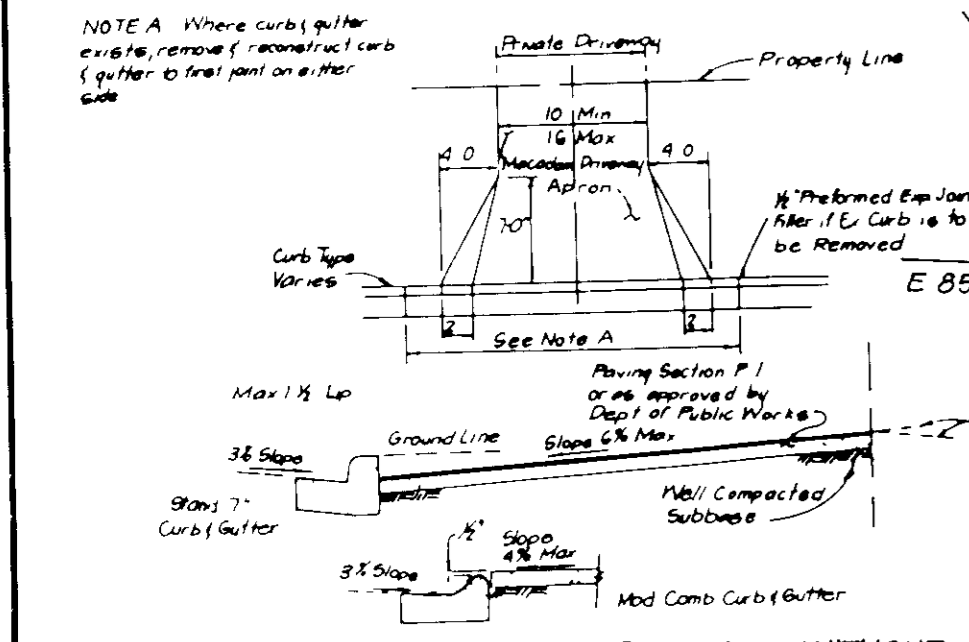 NOTE A Where curb & gutter
exists, remove & reconstruct curb
& gutter to first joint on either
side
Private Driveway
Property Line
10 Min
16 Max
4 0
4 0
Macadam Driveway
Apron
Curb Type
Varies
½" Preformed Exp Join
Filler if Ex Curb is to
be Removed
E 85
2
2
See Note A
Paving Section P 1
or as approved by
Dept of Public Works
Max 1 ½ Lip
Ground Line
Slope 6% Max
Slope
Stand 7"
Curb & Gutter
Well Compacted
Subbase
½"
Slope
4% Max
3% Slope
Mod Comb Curb & Gutter